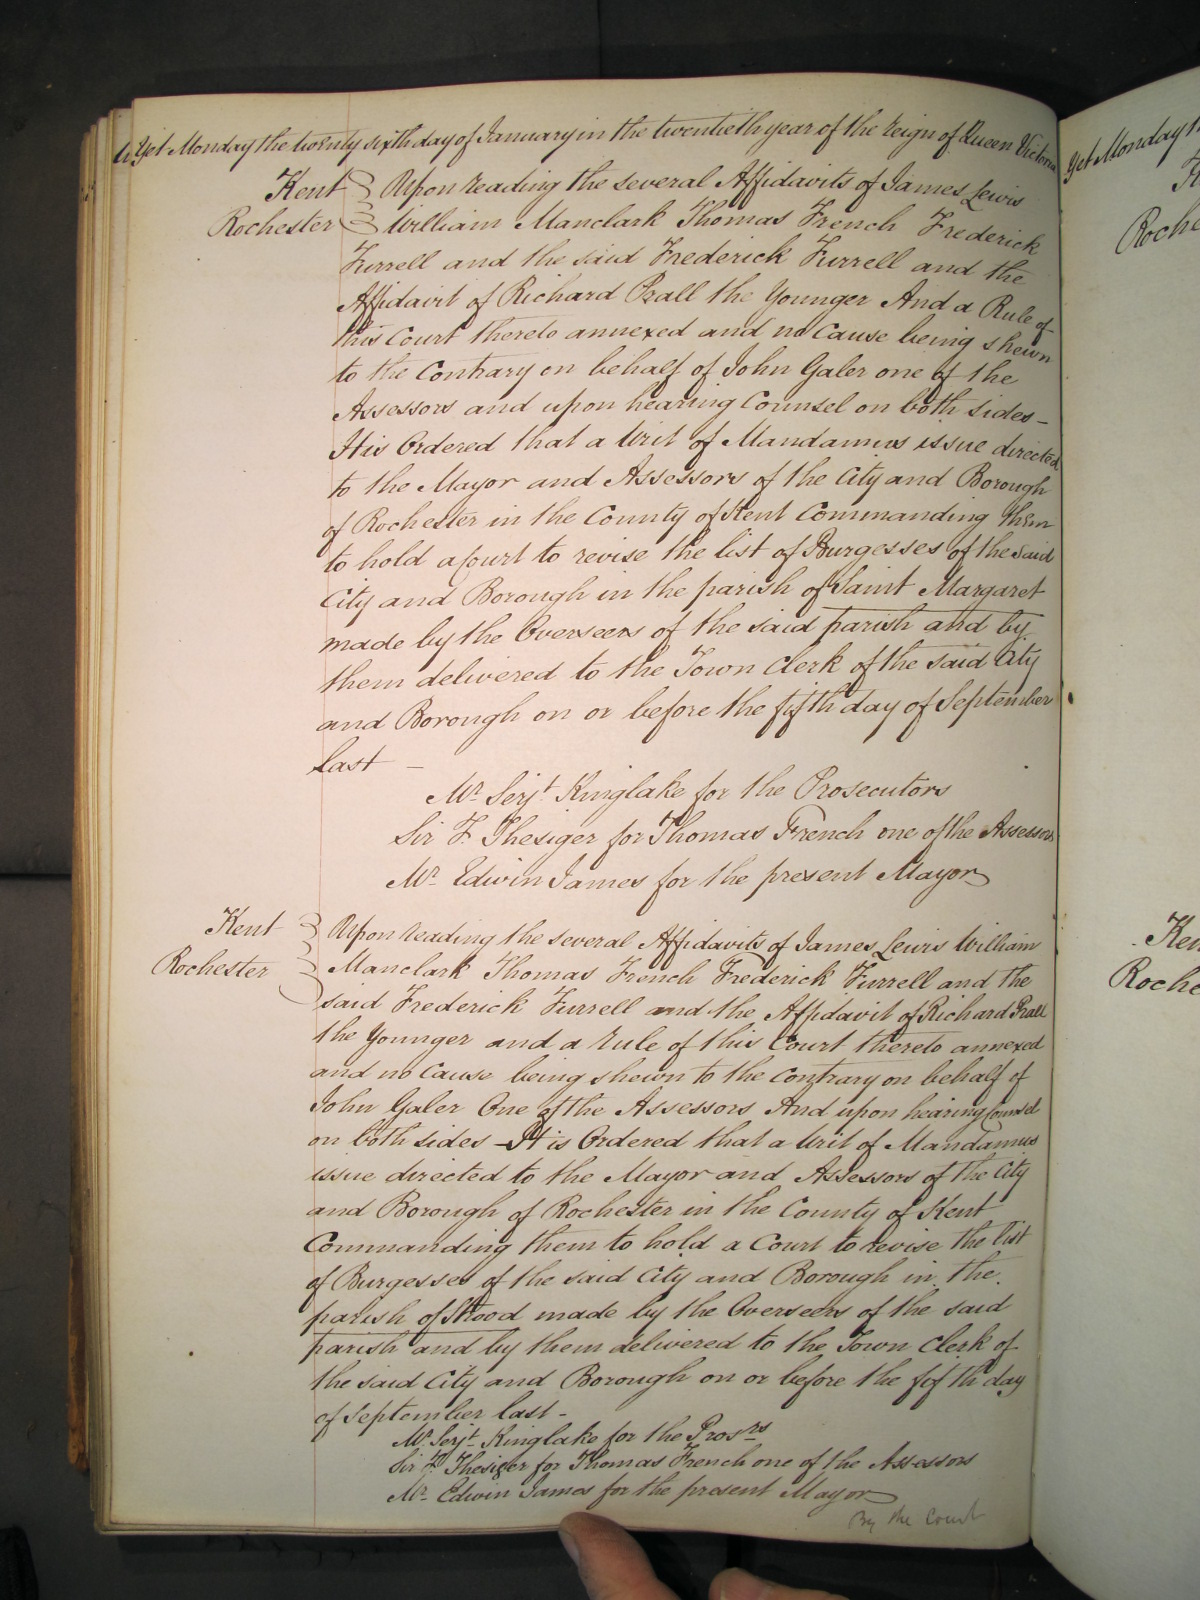 Yet Monday the twenty sixth day of January in the twentieth year of the reign of Queen Victoria
Kent
Rochester
Upon reading the several Affidavits of James Lewis
William Manclark Thomas French Frederick
Furrell and the said Frederick Furrell and the
Affidavit of Richard Prall the Younger And a Rule of
this Court thereto annexed and no Cause being shewn
to the Contrary on behalf of John Galer one of the
Assessors and upon hearing Counsel on both sides –
It is Ordered that a Writ of Mandamus issue directed
to the Mayor and Assessors of the City and Borough
of Rochester in the County of Kent Commanding them
to hold a Court to revise the list of Burgesses of the said
City and Borough in the parish of Saint Margaret
made by the Overseers of the said parish and by
them delivered to the Town Clerk of the said City
and Borough on or before the fifth day of September
last –
Mr. Serjt. Kinglake for the Prosecutors
Sir F. Thesiger for Thomas French one of the Assessors
Mr. Edwin James for the present Mayor
Kent
Rochester
Upon reading the several Affidavits of James Lewis William
Manclark Thomas French Frederick Furrell and the
said Frederick Furrell and the Affidavit of Richard Prall
the Younger and a rule of this Court thereto annexed
and no Cause being shewn to the Contrary on behalf of
John Galer One of the Assessors And upon hearing Counsel
on both sides – It is Ordered that a Writ of Mandamus
issue directed to the Mayor and Assessors of the City
and Borough of Rochester in the County of Kent
Commanding them to hold a Court to revise the list
of Burgesses of the said City and Borough in the
parish of Strood made by the Overseers of the said
parish and by them delivered to the Town Clerk of
the said City and Borough on or before the fifth day
of September last –
Mr. Serjt. Kinglake for the Prosrs
Sir F. Thesiger for Thomas French one of the Assessors
Mr. Edwin James for the present Mayor
By the Court
Yet Monday
Roche
Ken
Roche